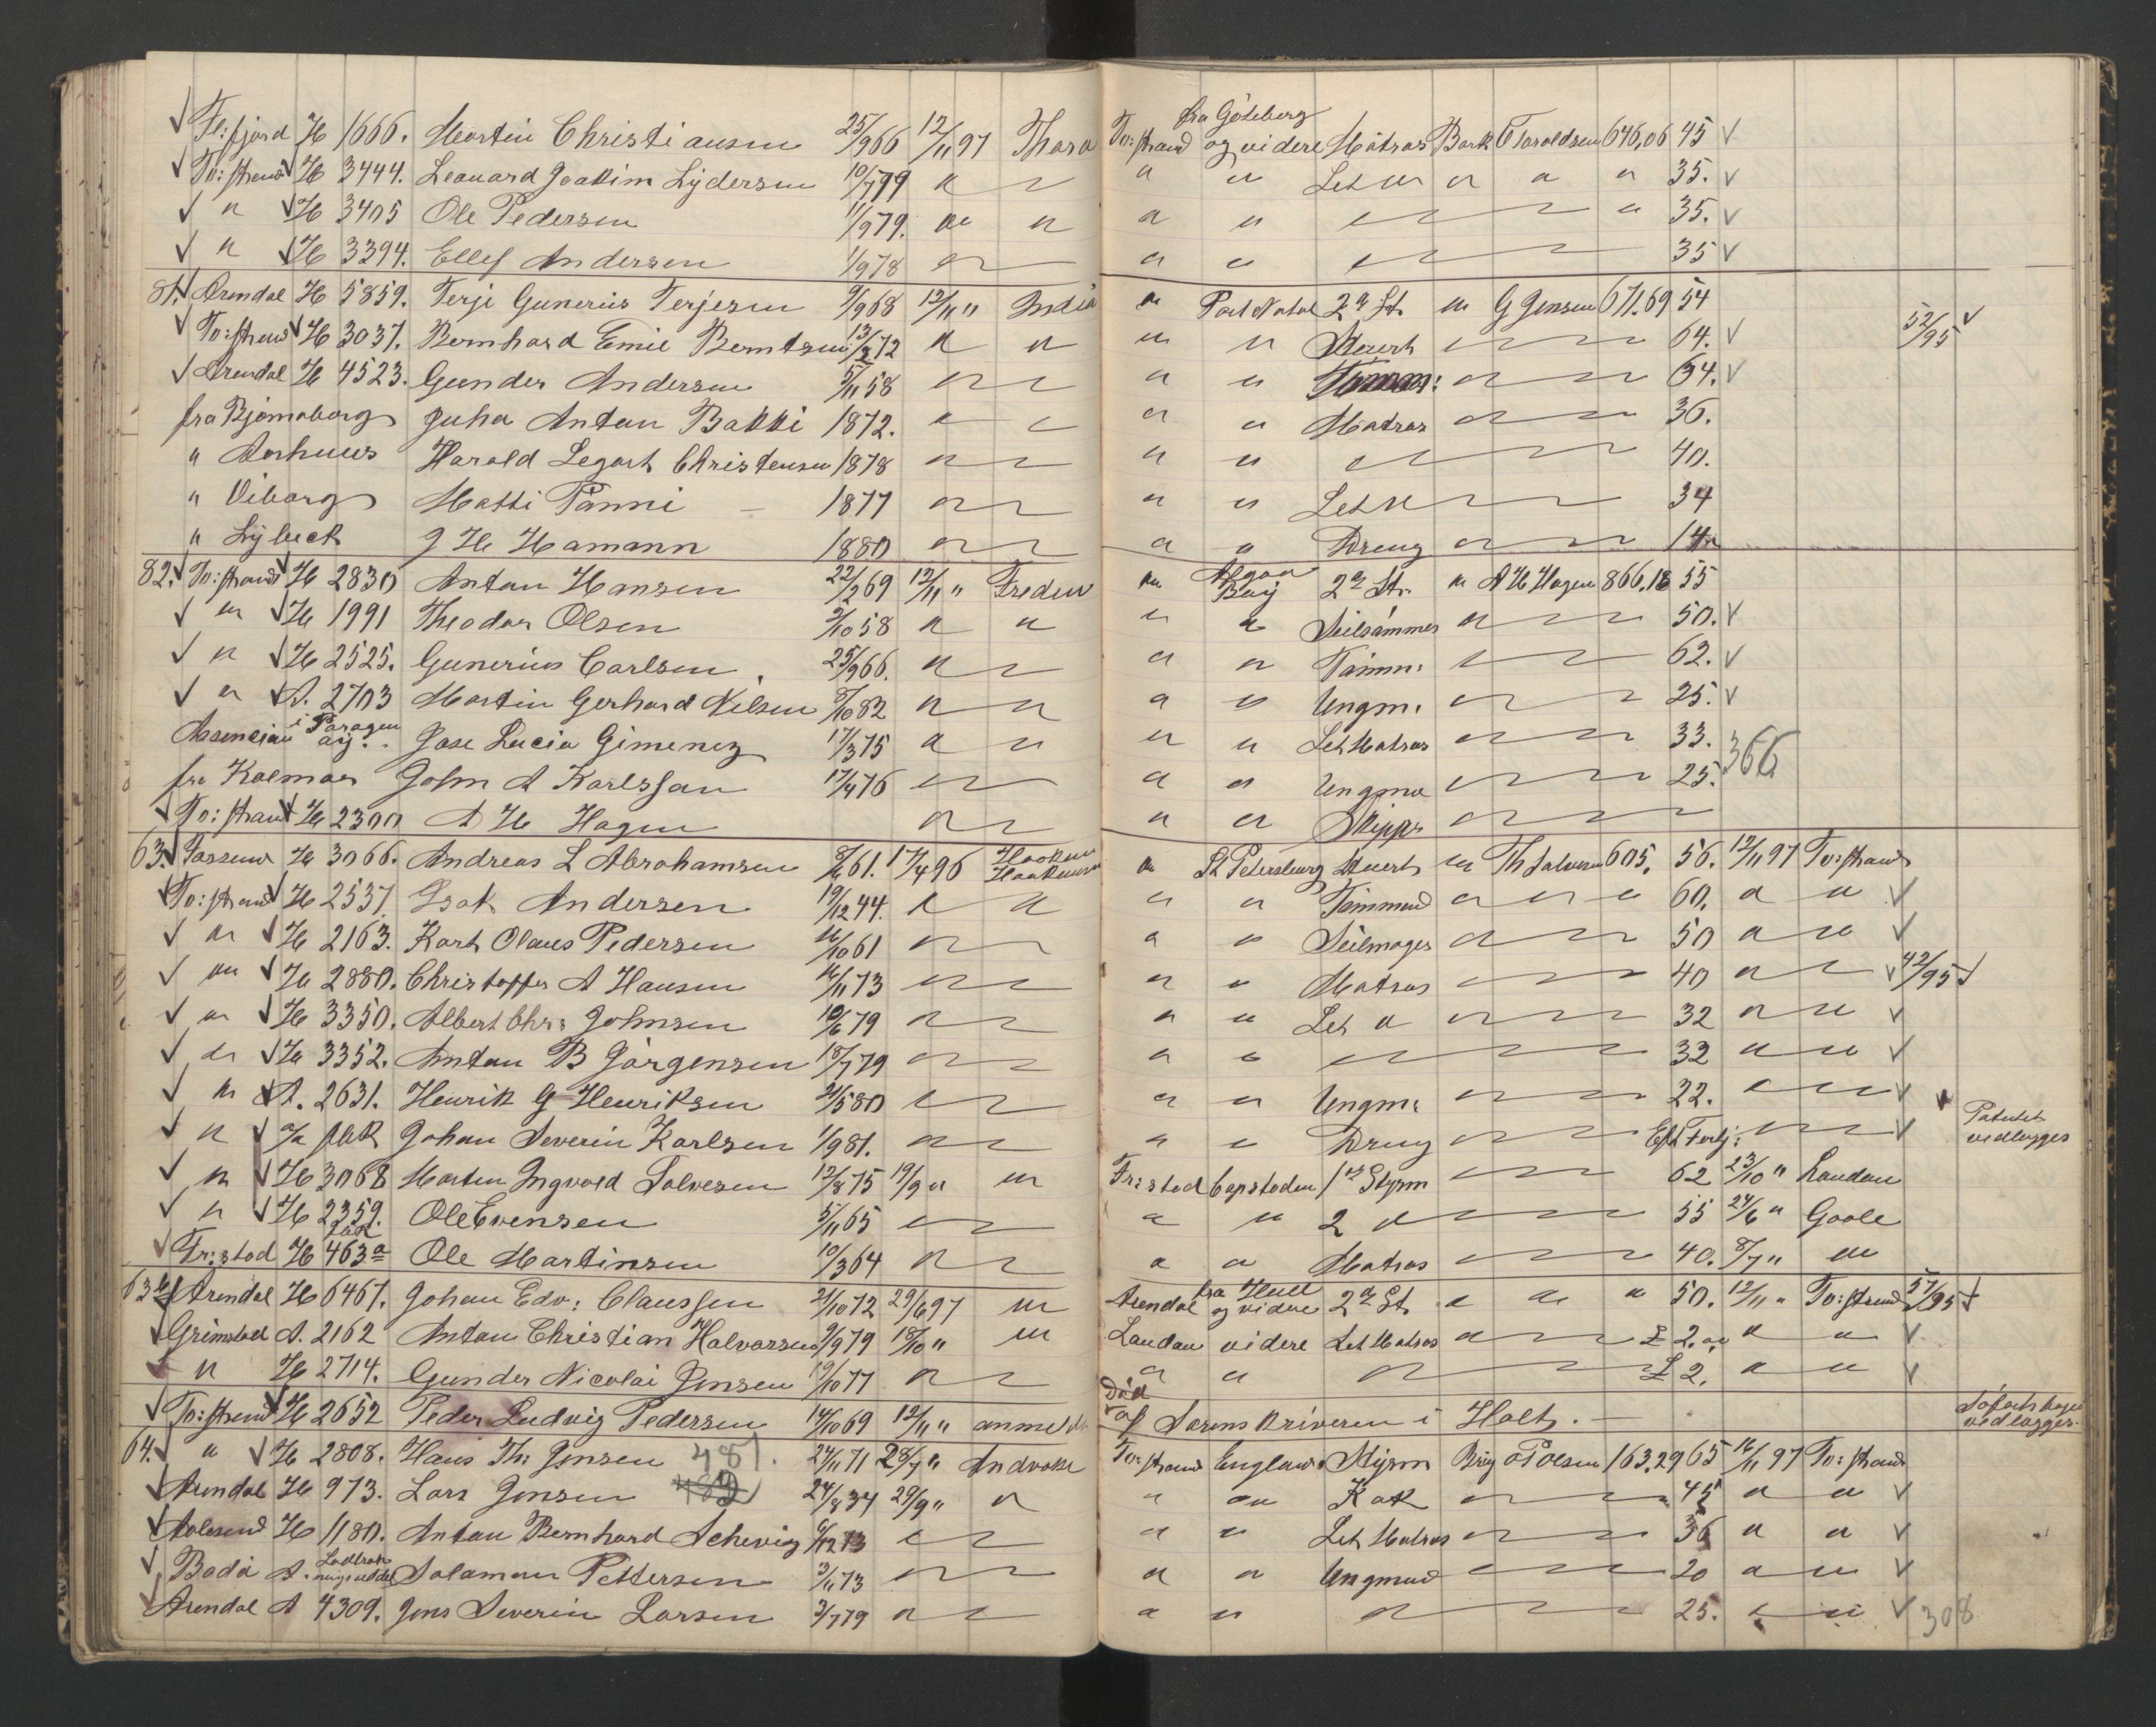 Fl:fjord H 1666. Martin Christiansen 25/9 66 12/11 97 Thara To:strand fra Göteborg og videre Matros Bark T Taraldsen 646,06 45
To:strand H 3444. Leonard Joakim Lydersen 10/7 79 " " " " Let " " " " 35.
" H 3405 Ole Pedersen 11/9 79. " " " " " 35.
" H 3394. Ellef Andersen 1/9 78 " " " 35
81. Arendal H 5859. Terje Gunerius Terjesen 9/9 68 12/11 " India " Port Natal 2den St. " G Jensen 671.69 54
To:strand H 3037. Bernhard Emil Berntsen 13/2 72 " " " " Stuert " 64. 52/95
Arendal H 4523. Gunder Andersen 5/11 58 " " " Tømm: " 64.
fra Bjørneborg Juha Antan Bakki 1872. " " " " Matros " 36.
" Aarhuus Harald Legart Christensen 1878 " " " " 40.
" Viborg Matti Panni 1877 " " " Let M " 34
" Lybeck J H Hamann 1880 " " " Dreng " 14
82. To:strand H 2830 Antan Hansen 22/2 69 12/11 " Freden " Algoa Bay 2den St. " A H Hagen 866.18 55
" H 1991 Theodor Olsen 2/10 58 " " " " Seilsømmer " 50.
" H 2525. Gunerius Carlsen 25/9 66. " " " Tømm: " 62.
" A. 2703 Martin Gerhard Nilsen 8/10 82 " " " " Ungm. " 25.
Assencian i Paraguay. Jose Lucia Gimenez 17/3 75 " " " " Let Matros " 33.
fra Kalmar John A Karlsson 17/4 76 " " " Ungm " 25. 366
To:strand H 2300 A H Hagen " " " Skipper "
63. Farsund H 3066. Andreas L Abrahamsen 8/6 61. 17/4 96 Haakon Haakonsen " St Petersburg Stuert " Th Salvesen 605. 56. 12/11 97 To:strand
To:strand H 2537. Isak Andersen 19/12 44. " " " " Tømmermd " " " 60. " "
" H 2163. Karl Olaus Pedersen 16/10 61 " " " Seilmager " 50 " "
" H 2880. Christoffer A Hansen 16/11 73 " " " Matros " 40 " " 42/95
" H 3350. Albert Chr: Johnsen 10/6 79 " " " Let " " 32 " "
" H 3352. Antan B Jørgensen 18/7 79 " " " " 32 " "
" A. 2631. Henrik G Henriksen 21/5 80 " " " Ungm: " 22. "
" Johan Severin Karlsen 1/9 81. " " " Dreng " Eft Fortj: " vedlægges
" H 3068 Morten Ingvald Salvesen 12/8 75 19/9 " " Fr:stad Capstaden 1ste Styrm " 62 23/10 " Landan
" H 2359. Ole Evensen 5/11 65 " " " 2 " " 55 24/6 " Goole
Fr:stad H 463a Ole Martinsen 10/3 64 " " " Matros " 40. 8/7 " "
63 b/ Arendal H 6467. Johan Edv: Claussen 21/10 72 29/6 97 " Arendal fra Hull og videre 2den St. " " " 50. 12/11 " To:strand 57/95
Grimstad A. 2162 Antan Christian Halvorsen 9/9 79 18/10 " " Landan videre Let Matros " £ 2.00 " "
" H 2714. Gunder Nicolai Jensen 19/10 77 " " " " £ 2. " "
To:strand H 2652 Peder Ludvig Pedersen 14/10 69 12/11 " anmeldt Død af Sorenskriveren i Holt. vedlægges.
64. " H 2808. Hans Th: Jensen 481. 24/11 71 28/7 " Andvake To:strand England Styrm Brig O Olsen 163.29 65 16/11 97 To:strand
Arendal H 973. Lars Jensen 24/8 34 29/9 " " " " Kok " 45 " "
Aalesund H 1180. Antan Bernhard Schevig 6/12 73 " " " Let Matros " 36 " "
Bodø A. Salamon Pettersen 3/11 73 " " " Ungmand " 20 " "
Arendal A 4309. Jens Severin Larsen 3/7 79 " " " " 25. " " 308